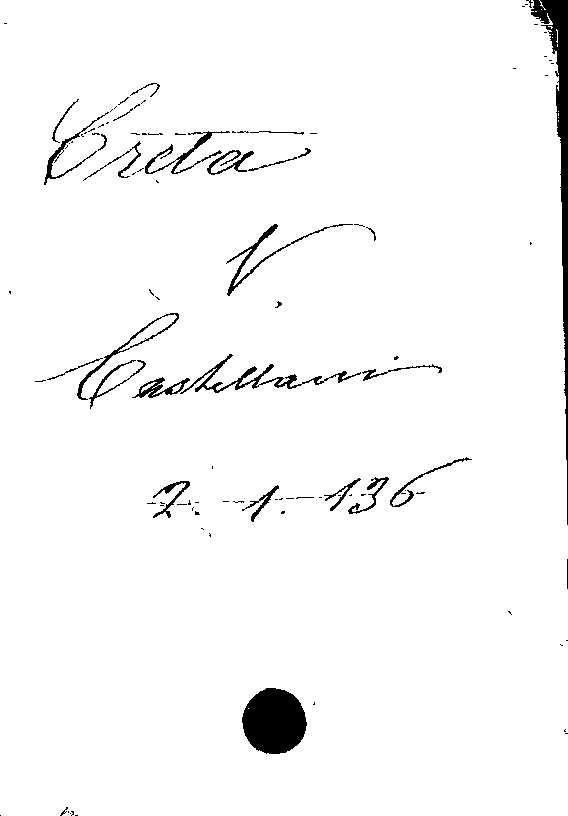 Creta
V.
Castellani
2. 1. 136